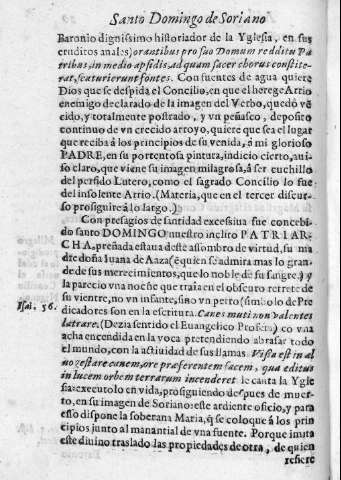 Santo Domingo de Soriano
Baronio dignissimo historiador de la Yglesia, en sus
eruditos anales) orantibus pro suo Domum redditu Pa
tribus, in medio apsidis, ad quam sacer chorus constite-
rat, scaturierunt fontes. Con fuentes de agua quiere
Dios que se despida el Concilio, en que el herege Arrio
enemigo declarado de la imagen del Verbo, quedò vē
cido, y totalmente postrado, y vn peñasco, deposito
continuo de vn crecido arroyo, quiere que sea el lugar
que reciba à los principios de su venida, à mi glorioso
PADRE, en su portentosa pintura, indicio cierto, aui-
so claro, que viene su imagen milagrosa, à ser cuchillo
del perfido Lutero, como el sagrado Concilio lo fue
del insolente Arrio. (Materia, que en el tercer discur-
so prosiguirè à lo largo.)
Con presagios de santidad excessiua fue concebi-
do santo DOMINGO nuestro inclito PATRIAR-
CHA, preñada estaua deste assombro de virtud, su ma
dre doña Iuana de Aaza (ē quien se admira mas lo gran-
de de sus merecimientos, que lo noble de su sangre) y
la parecio vna noche que traia en el obscuro retrete de
su vientre, no vn infante, sino vn perro (simbolo de Pre
dicadores son en la escritura. Canes muti non valentes
Isai. 56.
latrare. (Dezia sentido el Euangelico Profeta) co vna
acha encendida en la voca pretendiendo abrasar todo
el mundo, con la actiuidad de sus llamas. Vissa est in al
uo gestare canem, ore praeferentem facem, qua editus
in lucem orbem terrarum incenderet le canta la Ygle
sia: executolo en vida, prosiguiendo despues de muer-
to, en su imagen de Soriano: este ardiente oficio, y para
esso dispone la soberana Maria, q̃ se coloque à los prin
cipios junto al manantial de vna fuente. Porque imita
este diuino traslado las propiedades de otra, de quien
refiere